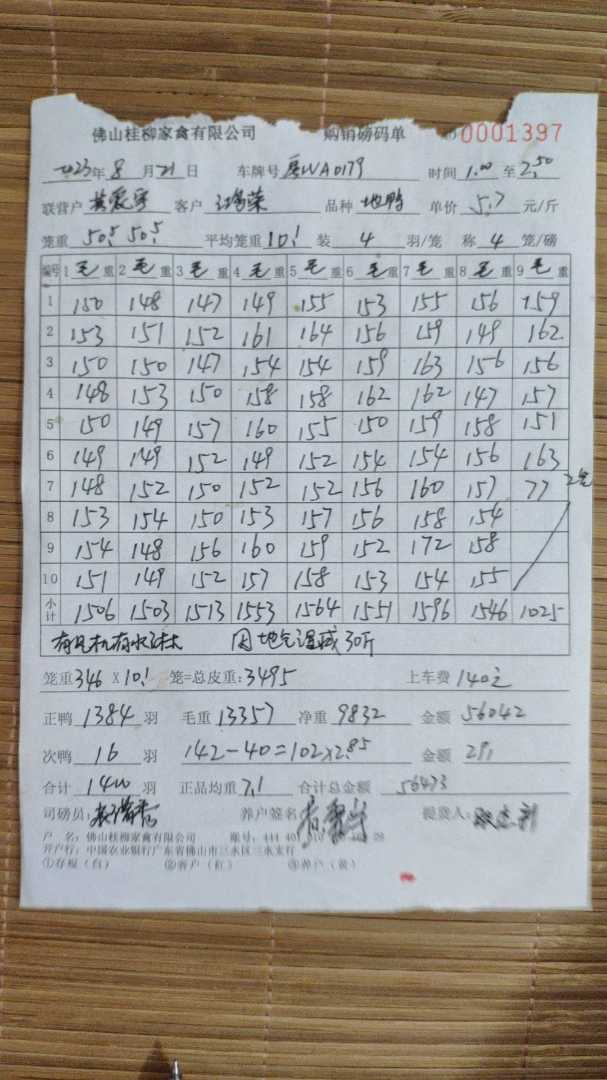 佛山桂柳家禽有限公司 购销磅码单 0001397
2023年8月21日 车牌号 WA0179 时间1.00至2.50
联营户 客户 鸿荣 品种 地鸭 单价 5.7 元/斤
笼重 50.5 50.5 平均笼重10.1 装 4 羽/笼 称 4 笼/磅
编号 1毛重 2毛重 3毛重 4毛重 5毛重 6毛重 7毛重 8毛重 9毛重
1 150 148 147 149 155 153 155 156 159
2 153 151 152 161 164 156 159 149 162
3 150 150 147 154 154 159 163 156 156
4 148 153 150 158 158 162 162 147 157
5 150 149 157 160 155 150 159 158 151
6 149 149 152 149 152 154 154 156 163
7 148 152 150 152 152 156 160 157 77 2笼
8 153 154 150 153 157 156 158 154
9 154 148 156 160 159 152 172 158
10 151 149 152 157 158 153 154 155
小计 1506 1503 1513 1553 1564 1551 1596 1546 1025
有风机有水 因地气湿减30斤
笼重346×10.1笼=总皮重:3495 上车费140元
正鸭1384羽 毛重13357 净重9832 金额56042
次鸭16羽 142-40=102×2.85 金额291
合计1400羽 正品均重7.1 合计总金额 56473
司磅员: 养户签名: 提货人:
户 名:佛山桂柳家禽有限公司 账号:444 401 010 28
开户行:中国农业银行广东省佛山市三水区三水支行
①存根(白) ②客户(红) ③养户(黄)